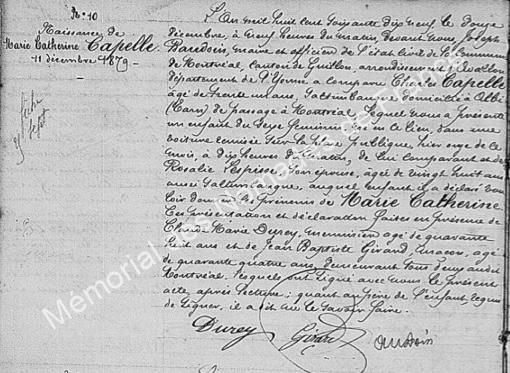 N° 10
Naissance de
Marie Catherine Capelle
11 décembre 1879
L'An mil huit cent soixante dix neuf le douze
décembre, à neuf heures du matin, devant nous, Joseph
Baudoin, maire et officier de l'état civil de la commune
de Montréal, canton de Guillon, arrondissement d'Avallon
département de l'Yonne a comparu Charles Capelle
âgé de trente un ans, saltimbanque, domicilié à Albi
(Tarn) de passage à Montréal, lequel nous a présenté
un enfant du sexe féminin, né en ce lieu, dans une
voiture remisée sur la place publique, hier onze de ce
mois, à dix heures du matin, de lui comparant et de
Rosalie son épouse, âgée de vingt huit ans
aussi saltimbanque, auquel enfant il a déclaré vou
loir donner les prénoms de Marie Catherine
Ces présentation et déclaration faites en présence de
Claude Marie Durey, menuisier âgé de quarante
huit ans et de Jean Baptiste Girard, maçon, âgé
de quarante quatre ans, demeurant tous deux audit
Montréal, lesquels ont signé avec nous le présent
acte, après lecture; quant au père de l'enfant requis
de signer, il a dit ne le savoir faire.
Durey Girard Baudoin
Mémorial des Hommages de France